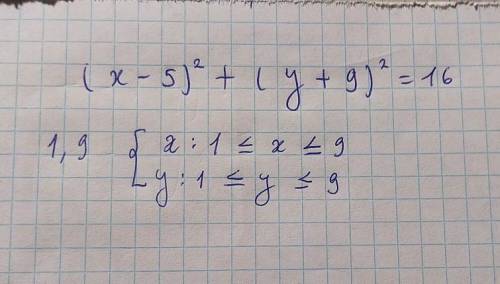 (x - 5)² + (y + 9)² = 16
1, 9 { x : 1 ≤ x ≤ 9
y : 1 ≤ y ≤ 9